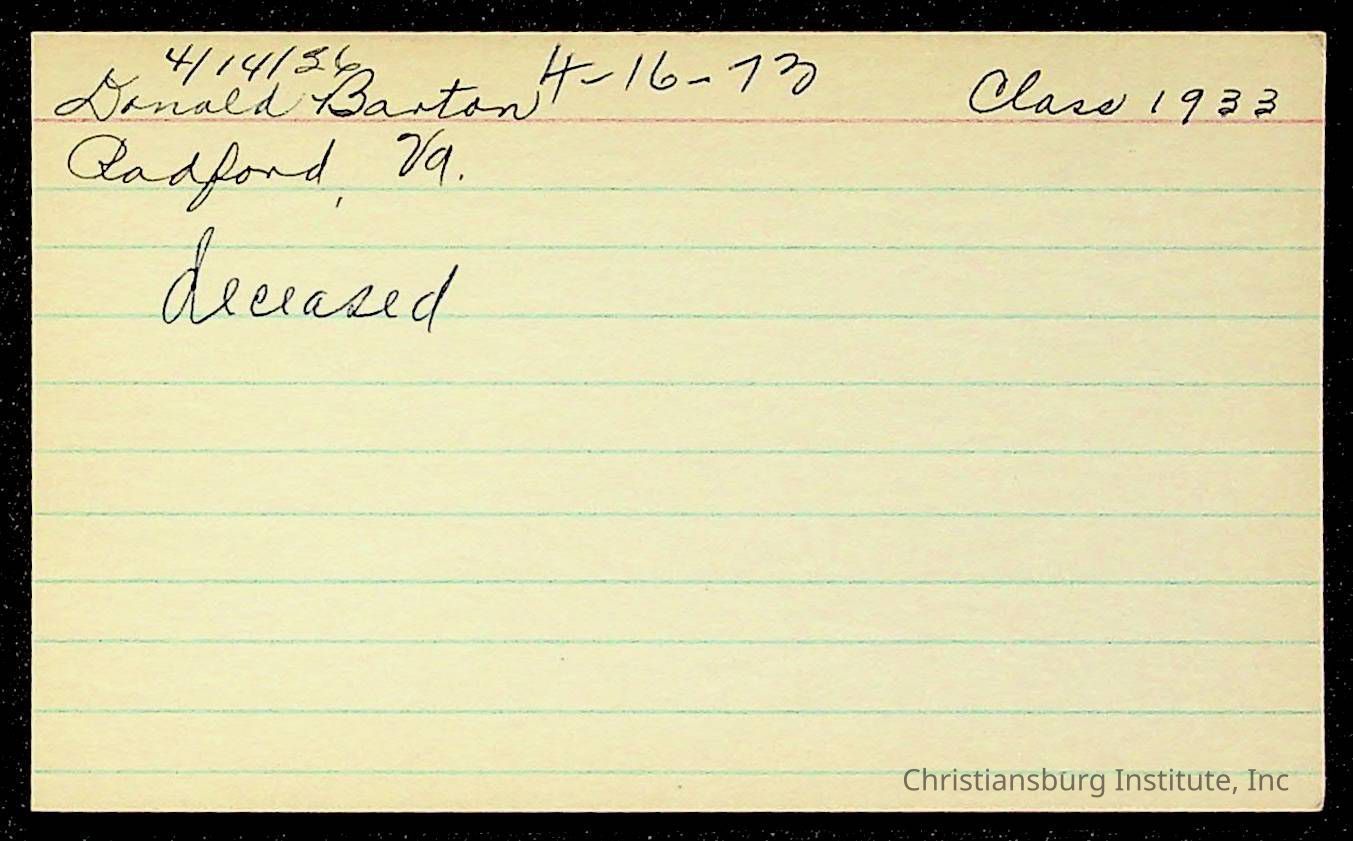 4/14/36
Donald Barton 4-16-73 Class 1933
Radford, Va.
deceased
Christiansburg Institute, Inc